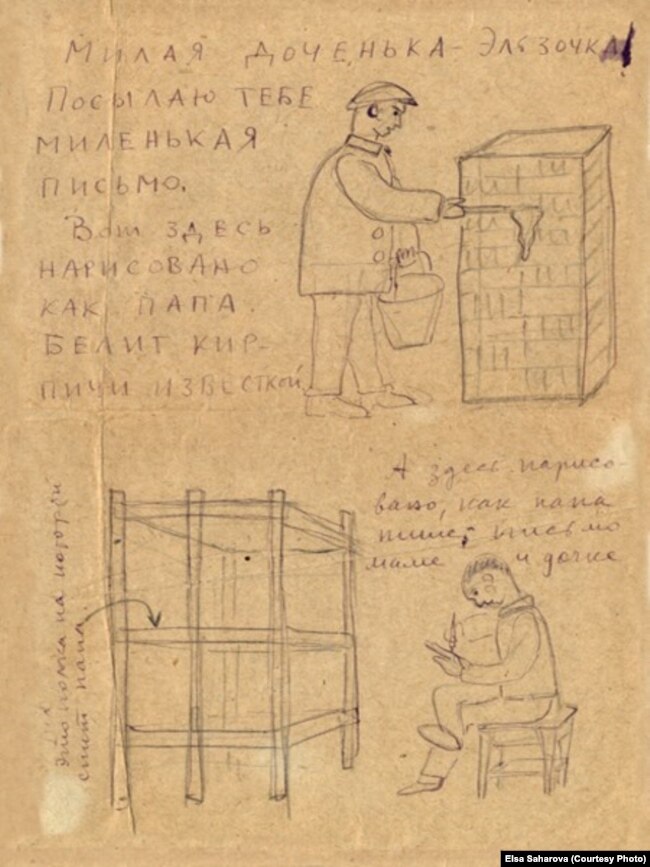 Милая доченька - Эльзочка!
Посылаю тебе
миленькая
письмо.
Вот здесь
нарисовано
как папа.
белит кир-
пичи известкой
А здесь нарисо-
вано, как папа
пишет письмо
маме и дочке
это полка на которой
спит папа
Elsa Saharova (Courtesy Photo)